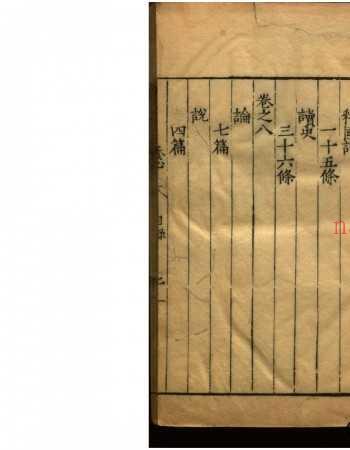 一十五條
讀史
三十六條
卷之八
論
七篇
說
四篇